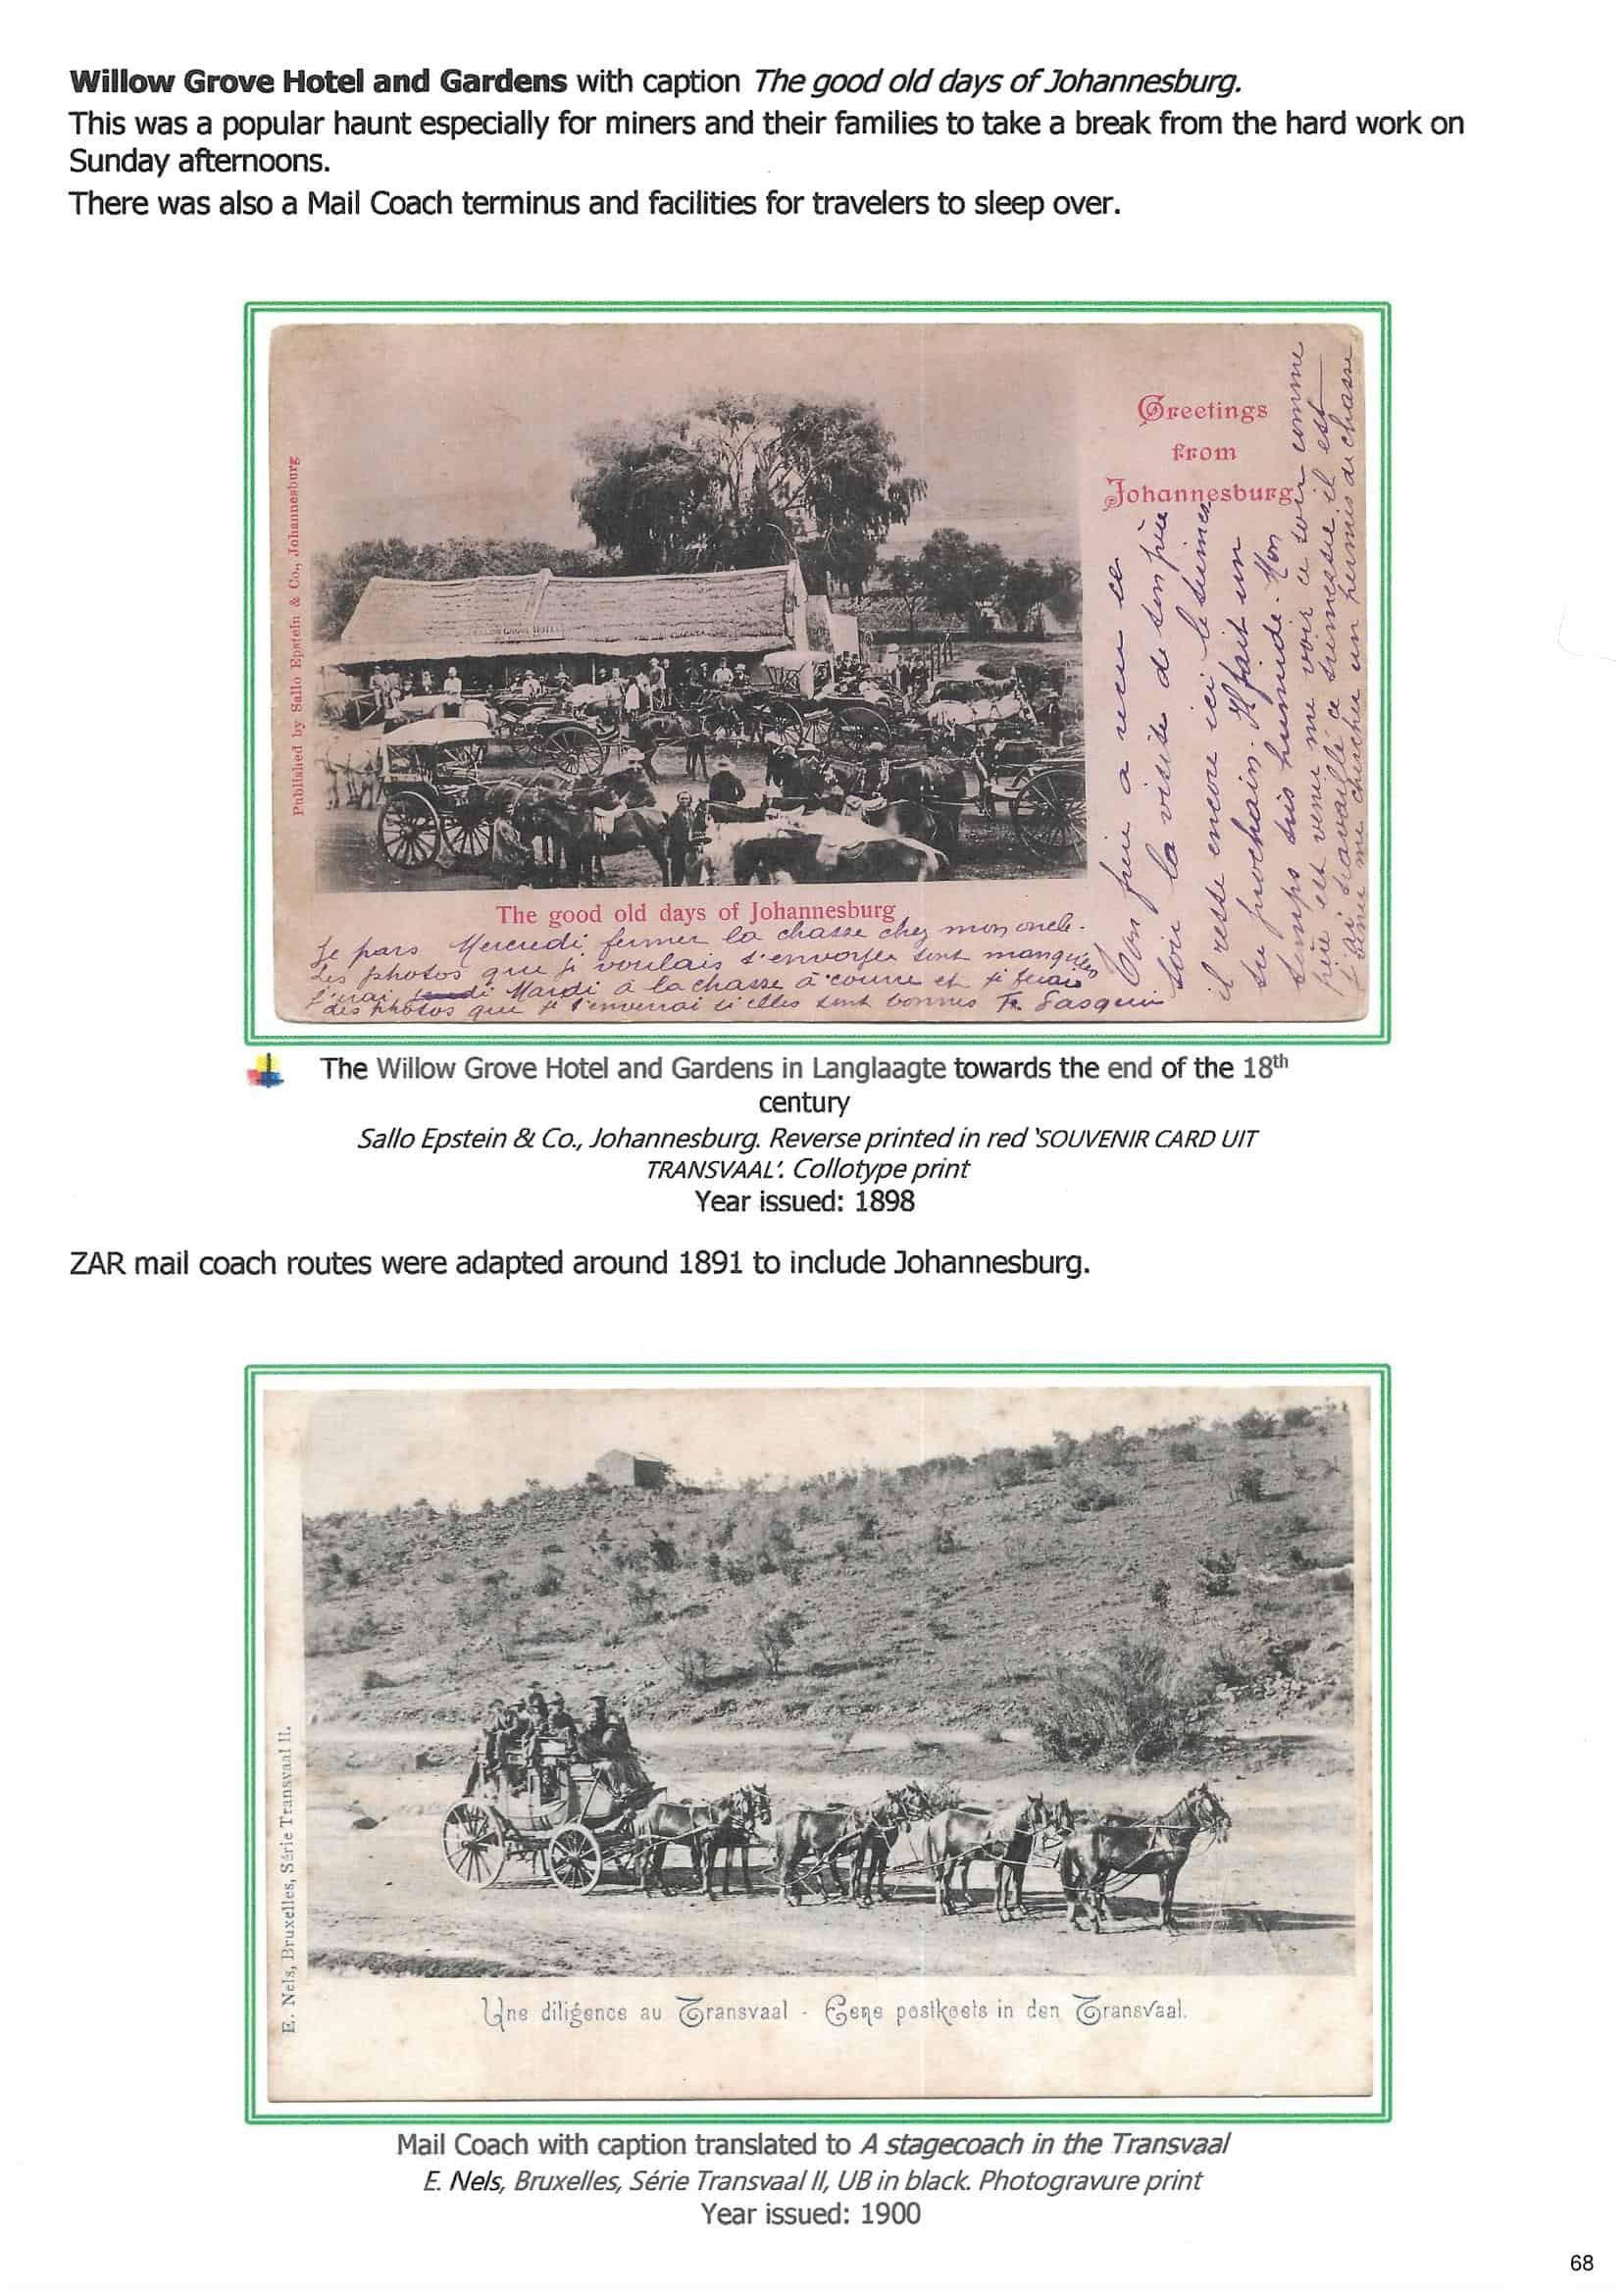 Willow Grove Hotel and Gardens with caption The good old days of Johannesburg.
This was a popular haunt especially for miners and their families to take a break from the hard work on
Sunday afternoons.
There was also a Mail Coach terminus and facilities for travelers to sleep over.
Published by Sallo Epstein & Co., Johannesburg
WILLOW GROVE HOTEL
Greetings
from
Johannesburg
The good old days of Johannesburg
Ton frère a reçu ce
soir la visite de son frère
il reste encore ici la semaine
prochain. Il fait un
temps très humide. Mon
frère est venu me voir ce soir comme
j'ai travaillé ce il est
chercher un permis de chasse
Je pars Mercredi fermer la chasse chez mon oncle.
Les photos que je voulais t'envoyer sont manquées
J'irai Mardi à la chasse à courre et je ferai
des photos que je t'enverrai si elles sont bonnes
The Willow Grove Hotel and Gardens in Langlaagte towards the end of the 18th
century
Sallo Epstein & Co., Johannesburg. Reverse printed in red 'SOUVENIR CARD UIT
TRANSVAAL'. Collotype print
Year issued: 1898
ZAR mail coach routes were adapted around 1891 to include Johannesburg.
E. Nels, Bruxelles, Série Transvaal II.
Une diligence au Transvaal - Eene postkoets in den Transvaal.
Mail Coach with caption translated to A stagecoach in the Transvaal
E. Nels, Bruxelles, Série Transvaal II, UB in black. Photogravure print
Year issued: 1900
68